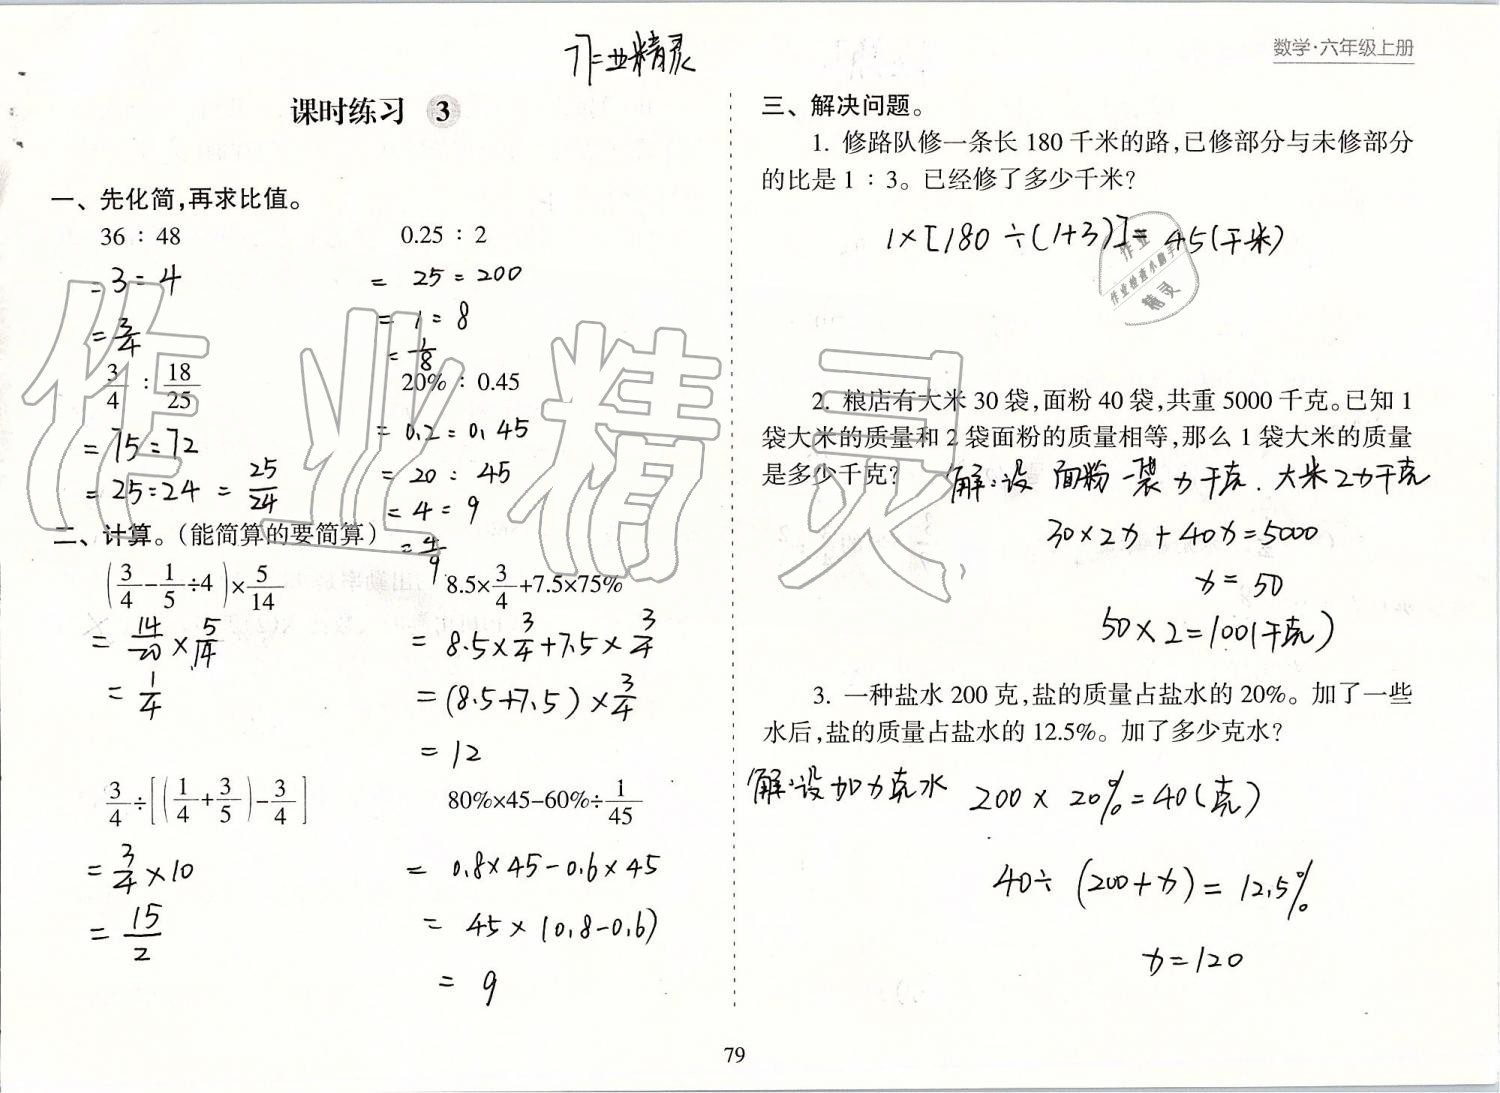 作业精灵
数学·六年级上册
课时练习 3
一、先化简,再求比值。
36 : 48
0.25 : 2
= 3 : 4
= 25 : 200
= 1 : 8
= 3/4
= 1/8
3/4 : 18/25
20% : 0.45
= 75 : 72
= 0.2 : 0.45
= 25 : 24 = 25/24
= 20 : 45
= 4 : 9
= 4/9
二、计算。(能简算的要简算)
(3/4-1/5÷4)×5/14
8.5×3/4+7.5×75%
= 14/20 × 5/14
= 8.5×3/4+7.5×3/4
= 1/4
= (8.5+7.5)×3/4
= 12
3/4÷[(1/4+3/5)-3/4]
80%×45-60%÷1/45
= 3/4×10
= 0.8×45-0.6×45
= 15/2
= 45×(0.8-0.6)
= 9
三、解决问题。
1. 修路队修一条长 180 千米的路,已修部分与未修部分
的比是 1 : 3。已经修了多少千米?
1×[180÷(1+3)]=45(千米)
作业
作业检查小助手
精灵
2. 粮店有大米 30 袋,面粉 40 袋,共重 5000 千克。已知 1
袋大米的质量和 2 袋面粉的质量相等,那么 1 袋大米的质量
是多少千克?
解:设 面粉一袋x千克.大米2x千克
30×2x+40x=5000
x=50
50×2=100(千克)
3. 一种盐水 200 克,盐的质量占盐水的 20%。加了一些
水后,盐的质量占盐水的 12.5%。加了多少克水?
解:设加x克水 200×20%=40(克)
40÷(200+x)=12.5%
x=120
79
作业精灵